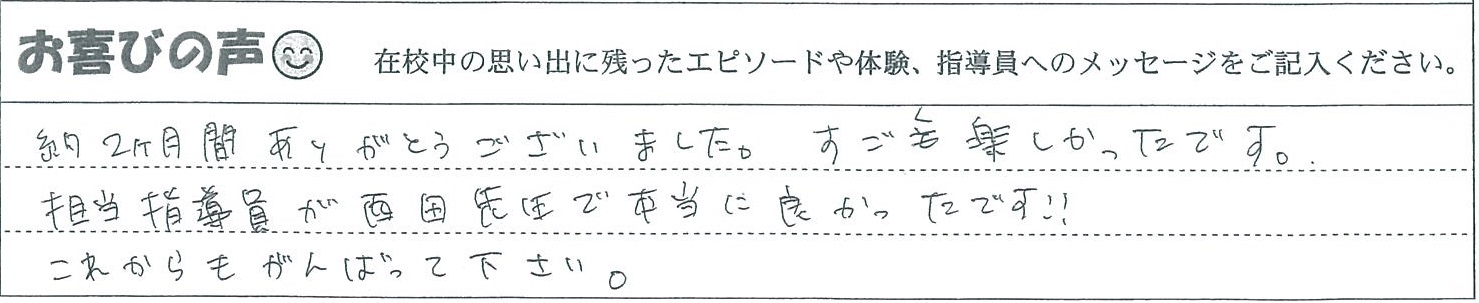 お喜びの声 在校中の思い出に残ったエピソードや体験、指導員へのメッセージをご記入ください。
約2ヶ月間ありがとうございました。すごく楽しかったです。
担当指導員が西田先生で本当に良かったです!!
これからもがんばって下さい。